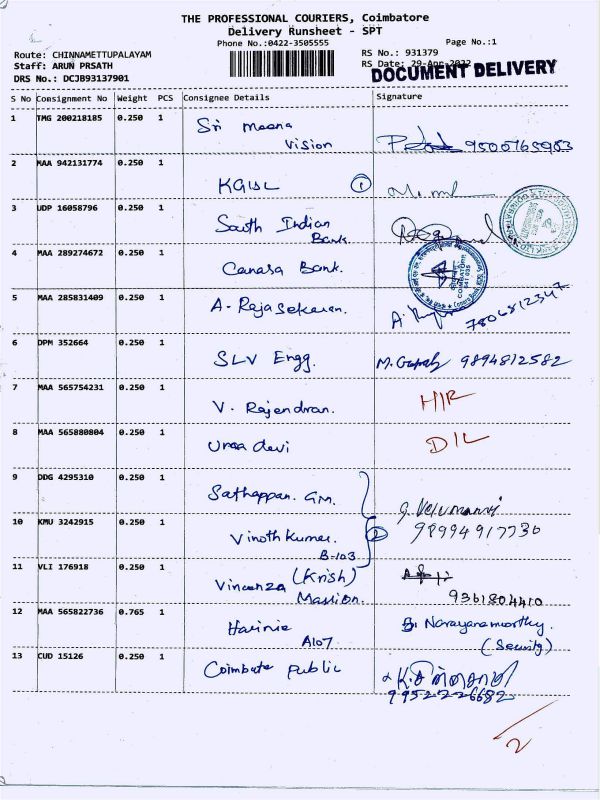 THE PROFESSIONAL COURIERS, Coimbatore
Delivery Runsheet - SPT
Phone No.:0422-3505555
Page No.:1
Route: CHINNAMETTUPALAYAM
Staff: ARUN PRSATH
DRS No.: DCJB93137901
RS No.: 931379
RS Date: 29-Apr-2022
DOCUMENT DELIVERY
S No Consignment No Weight PCS Consignee Details Signature
1 TMG 200218185 0.250 1 Sri Meena
Vision
9500765953
2 MAA 942131774 0.250 1 KGISL 1
3 UDP 16058796 0.250 1 South Indian
Bank
4 MAA 289274672 0.250 1 Canara Bank.
5 MAA 285831409 0.250 1 A. Rajasekaran.
7806812347
6 DPM 352664 0.250 1 SLV Engg. 9894812582
7 MAA 565754231 0.250 1 V. Rajendran.
8 MAA 565880804 0.250 1 Uma devi D I L
9 DDG 4295310 0.250 1 Sathappan. GM. G. Velumani
10 KMU 3242915 0.250 1 Vinoth Kumar. 2
B-103
11 VLI 176918 0.250 1 Vincenza (Krish)
Massion.
9361804410
12 MAA 565822736 0.765 1 Harinie
A107
Narayanamoorthy.
(Security)
13 CUD 15126 0.250 1 Coimbate public
9952226682
2